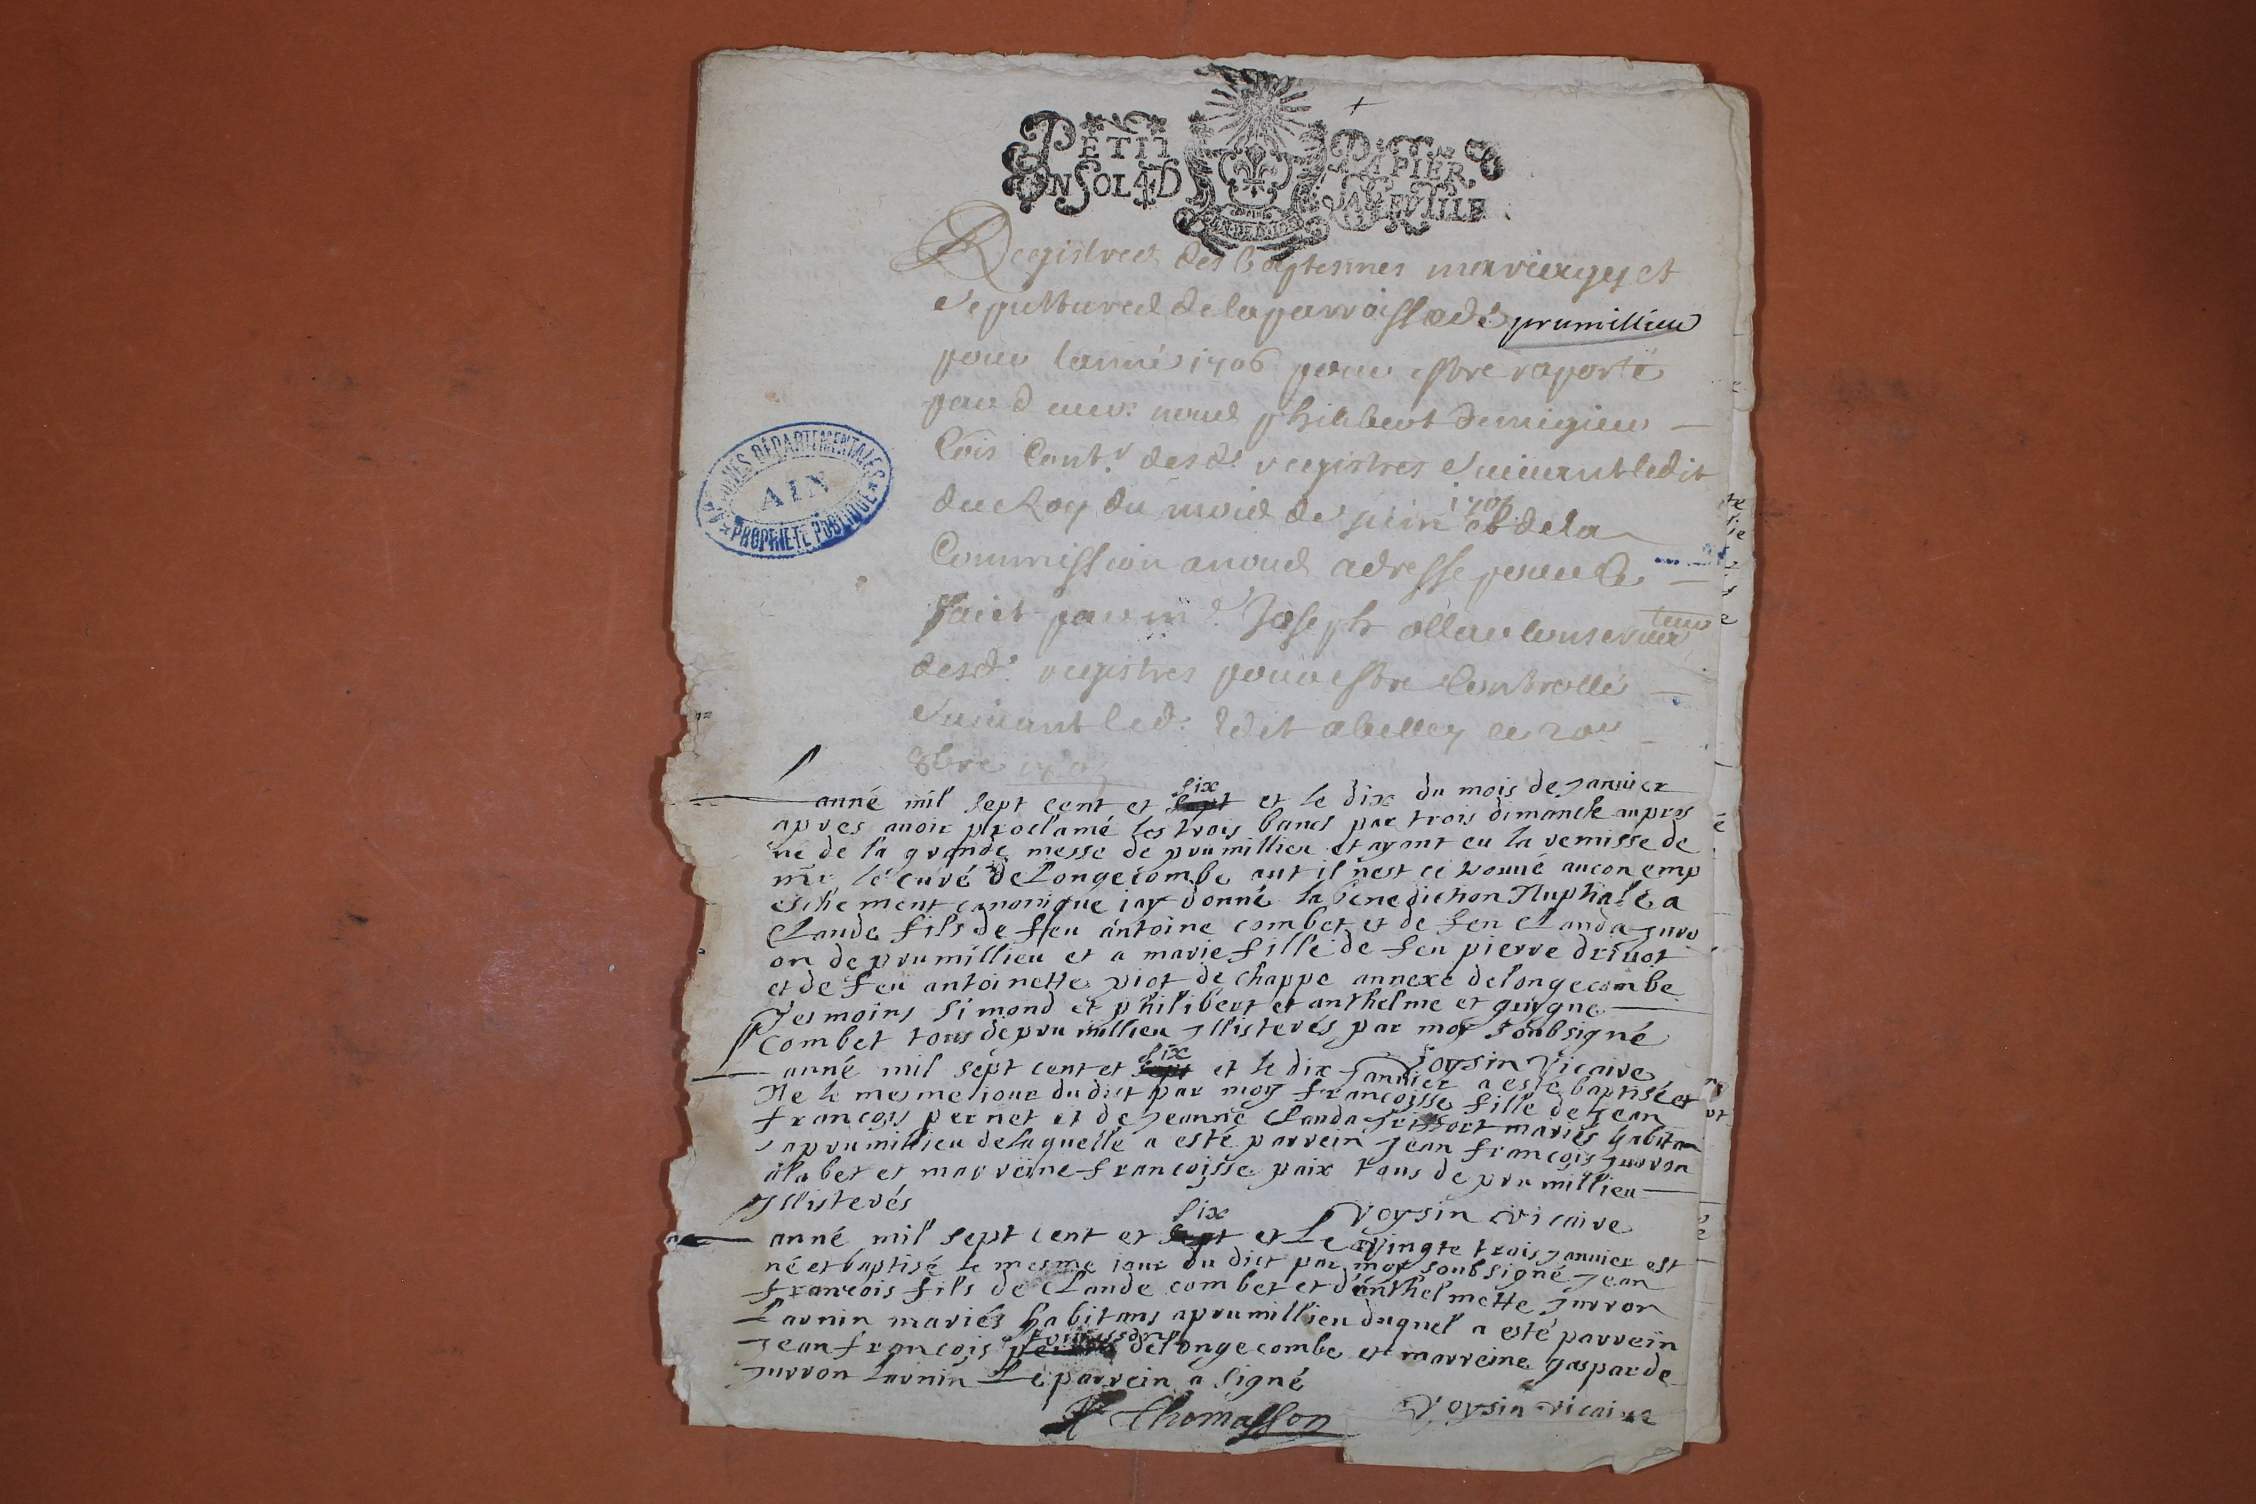 PETIT PAPIER
UN SOL 4 D LA FEUILLE
Registres des baptesmes mariages et
sepultures de la parroisse de prumillieu
pour lanné 1706 pour estre raporté
par d nous philibert demigieu
Cons Contr. desd. registres suiuant ledit
du Roy du mois de juin 1705 et de la
Commission a nous adressé pour le
faict par mr Joseph ollau conseruateur
desd. registres pour estre Controllé
suiuant led. Edit a belley ce 20
8bre
ARCHIVES DÉPARTEMENTALES
AIN
PROPRIÉTÉ PUBLIQUE
Lanné mil sept cent et six et le dix du mois de Januier
apres auoir proclamé les trois bancs par trois dimanche au pros
ne de la grande messe de prumillieu et ayant eu la remisse de
mr le curé de Longecombe aut il nest ce trouué aucon emp
eschement canonique iay donné la benediction Nuphale a
Claude fils de feu antoine combet et de feu Clauda Jurr
on de prumillieu et a marie fille de feu pierre driuot
et de feu antoinette piot de chappe annexe delongecombe
Tesmoins simond et philibert et anthelme et guygne
Combet tous de prumillieu Jllisterés par moy soubsigné
Voysin Vicaire
Lanné mil sept cent et six et le dix Januier a esté baptisé et
Né le mesme iour du dict par moy francoisse fille de Jean
francois pernet et de Jeanne Clauda mariés habitan
s a prumillieu de laquelle a esté parrein Jean francois Jurron
alabet et marreine francoisse paix tous de prumillieu
Jllisterés
Voysin Vicaire
Lanné mil sept cent et six et Le Vingte trois Januier est
né et baptisé le mesme iour du dict par moy soubsigné Jean
francois fils de Claude combet et d'anthelmette Jurron
Larnin mariés habitans a prumillieu duquel a esté parrein
Jean francois thomasson delongecombe et marreine gasparde
Jurron Larnin Le parrein a signé
Thomasson
Voysin vicaire